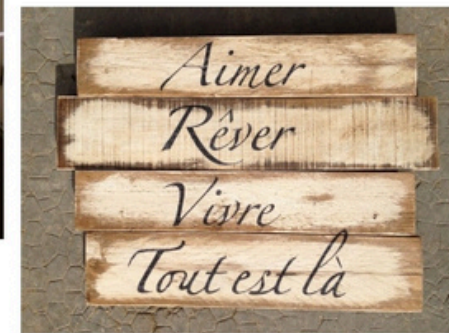 Aimer
Rêver
Vivre
Tout est là